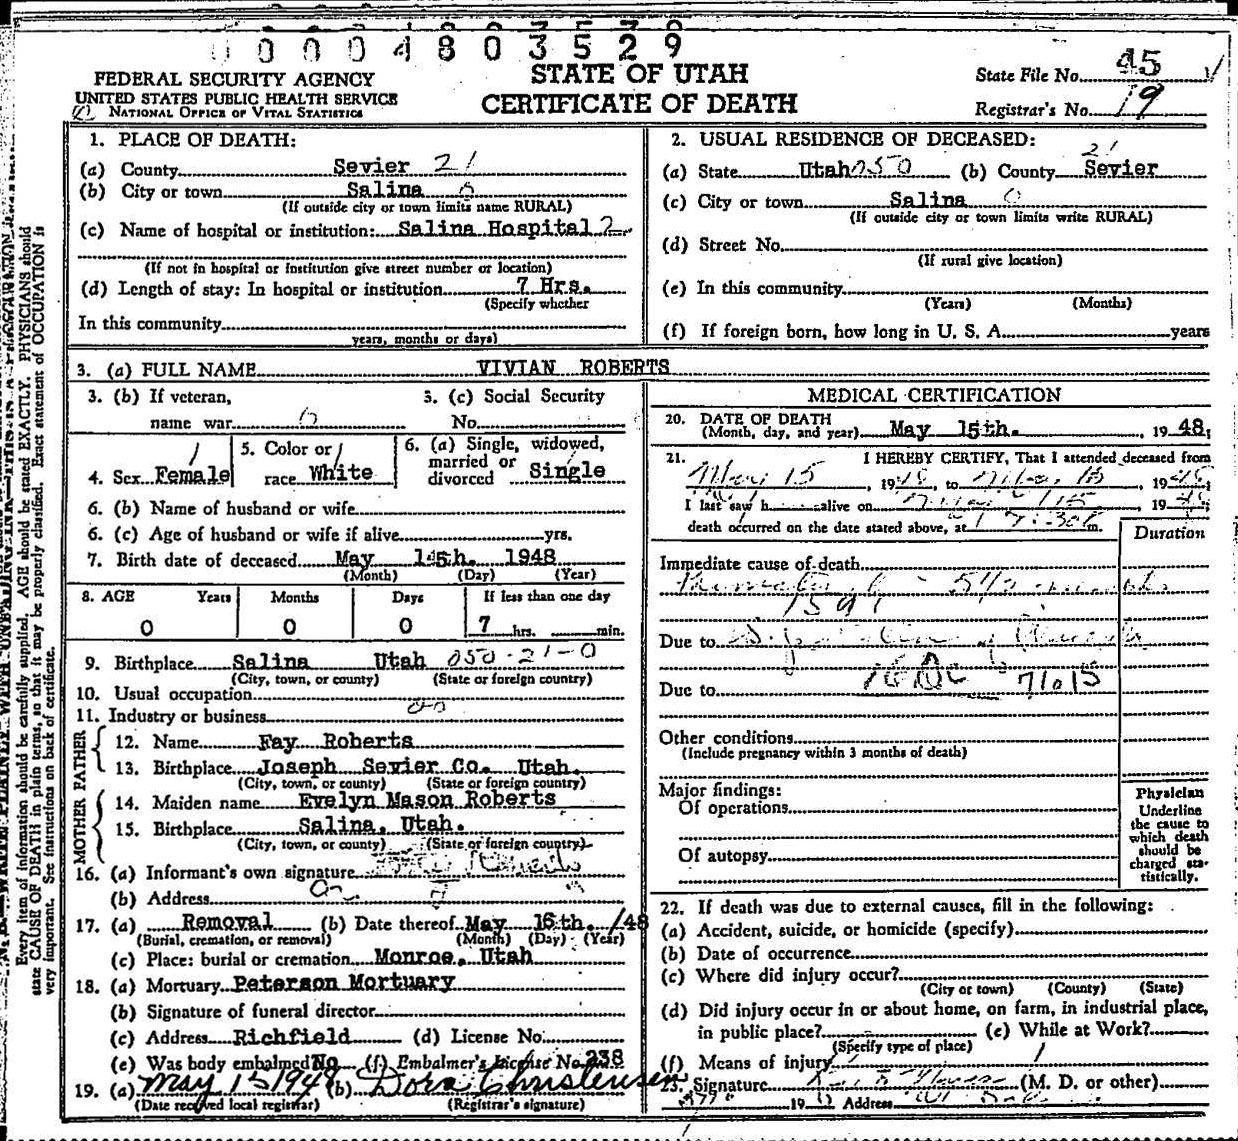 00004803529
FEDERAL SECURITY AGENCY
UNITED STATES PUBLIC HEALTH SERVICE
NATIONAL OFFICE OF VITAL STATISTICS
STATE OF UTAH
CERTIFICATE OF DEATH
State File No. 95
Registrar's No. 19
1. PLACE OF DEATH:
(a) County Sevier 21
(b) City or town Salina 0
(If outside city or town limits name RURAL)
(c) Name of hospital or institution: Salina Hospital 2
(If not in hospital or institution give street number or location)
(d) Length of stay: In hospital or institution 7 Hrs.
(Specify whether
In this community
years, months or days)
2. USUAL RESIDENCE OF DECEASED:
(a) State Utah 050 (b) County Sevier 21
(c) City or town Salina 0
(If outside city or town limits write RURAL)
(d) Street No.
(If rural give location)
(e) In this community
(Years) (Months)
(f) If foreign born, how long in U. S. A. years
3. (a) FULL NAME VIVIAN ROBERTS
3. (b) If veteran,
name war 0
3. (c) Social Security
No.
4. Sex Female
5. Color or
race White
6. (a) Single, widowed,
married or
divorced Single
6. (b) Name of husband or wife
6. (c) Age of husband or wife if alive yrs.
7. Birth date of deceased May 15th. 1948
(Month) (Day) (Year)
8. AGE Years Months Days If less than one day
0 0 0 7 hrs. min.
9. Birthplace Salina Utah 050-21-0
(City, town, or county) (State or foreign country)
10. Usual occupation
11. Industry or business
FATHER
12. Name Fay Roberts
13. Birthplace Joseph Sevier Co. Utah.
(City, town, or county) (State or foreign country)
MOTHER
14. Maiden name Evelyn Mason Roberts
15. Birthplace Salina, Utah.
(City, town, or county) (State or foreign country)
16. (a) Informant's own signature Roberts
(b) Address
17. (a) Removal (b) Date thereof May 16th. /48
(Burial, cremation, or removal) (Month) (Day) (Year)
(c) Place: burial or cremation Monroe, Utah
18. (a) Mortuary Peterson Mortuary
(b) Signature of funeral director
(c) Address Richfield (d) License No.
(e) Was body embalmed No (f) Embalmer's License No. 238
19. (a) May 15 1948 (b) Dora Christensen
(Date received local registrar) (Registrar's signature)
MEDICAL CERTIFICATION
20. DATE OF DEATH
(Month, day, and year) May 15th. , 1948;
21. I HEREBY CERTIFY, That I attended deceased from
May 15, 1948, to May 15, 1948;
I last saw h alive on May 15, 1948;
death occurred on the date stated above, at 7:30 m.
Duration
Immediate cause of death
Prematurity - 5 1/2 months
1591
Due to
Due to 71015
Other conditions
(Include pregnancy within 3 months of death)
Major findings:
Of operations
Of autopsy
Physician
Underline
the cause to
which death
should be
charged sta-
tistically.
22. If death was due to external causes, fill in the following:
(a) Accident, suicide, or homicide (specify)
(b) Date of occurrence
(c) Where did injury occur?
(City or town) (County) (State)
(d) Did injury occur in or about home, on farm, in industrial place,
in public place? (e) While at Work?
(Specify type of place)
(f) Means of injury
23. Signature (M. D. or other)
19 Address
Every item of information should be carefully supplied. AGE should be stated EXACTLY. PHYSICIANS should
state CAUSE OF DEATH in plain terms, so that it may be properly classified. Exact statement of OCCUPATION is
very important. See instructions on back of certificate.